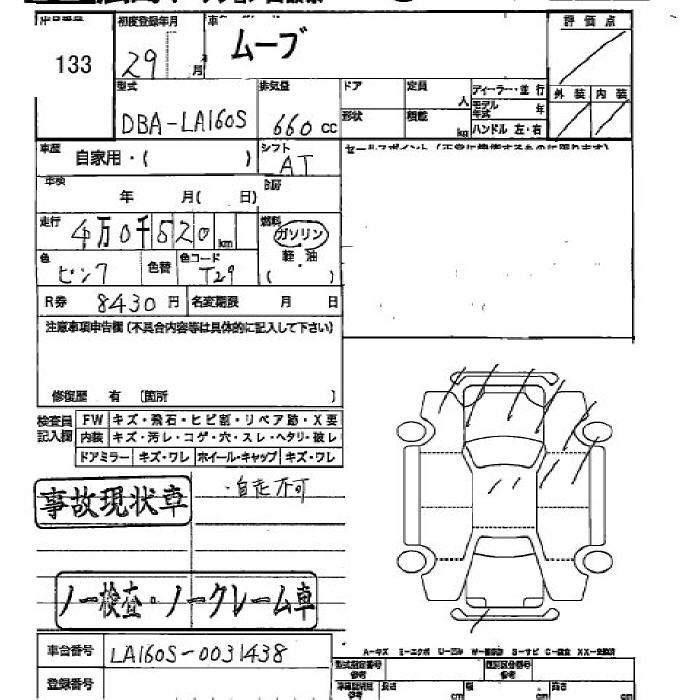 出品番号 初度登録年月 車 評価点
133 29 月 ムーブ
型式 排気量 ドア 定員 人 ディーラー・並行 外装 内装
DBA-LA160S 660cc 形状 積載 kg モデル年式 年
ハンドル 左・右
車歴 自家用・( ) シフト AT セールスポイント
車検 年 月( 日) 冷房
走行 4万0千520km 燃料 ガソリン
軽油
色 ピンク 色替 色コード T29 ( )
R券 8430円 名変期限 月 日
注意事項申告欄(不具合内容等は具体的に記入して下さい)
修復歴 有 (箇所 )
検査員 FW キズ・飛石・ヒビ割・リペア跡・X要
記入欄 内装 キズ・汚レ・コゲ・穴・スレ・ヘタリ・破レ
ドアミラー キズ・ワレ ホイールキャップ キズ・ワレ
・自走不可
事故現状車
ノー検査・ノークレーム車
車台番号 LA160S-0031438
A-キズ E-エクボ
登録番号
型式指定番号 参考 類別区分番号 参考
長さ cm 幅 cm 高さ cm